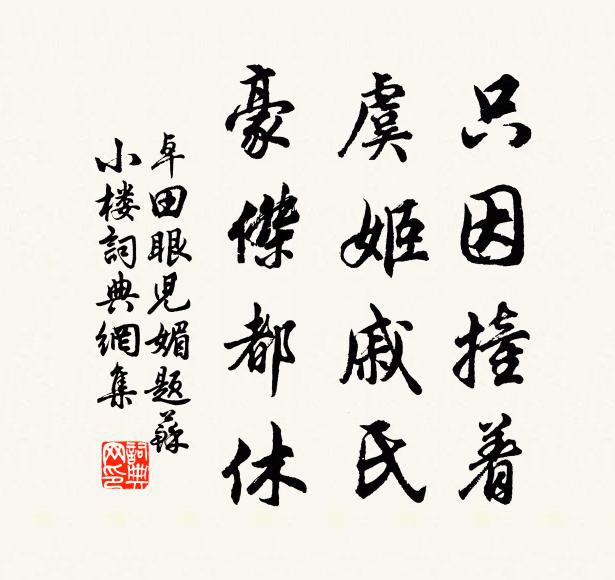 只因撞着
虞姬戚氏
豪傑都休
卓田眼児媚題蘇
小楼詞典網集
詞典网印